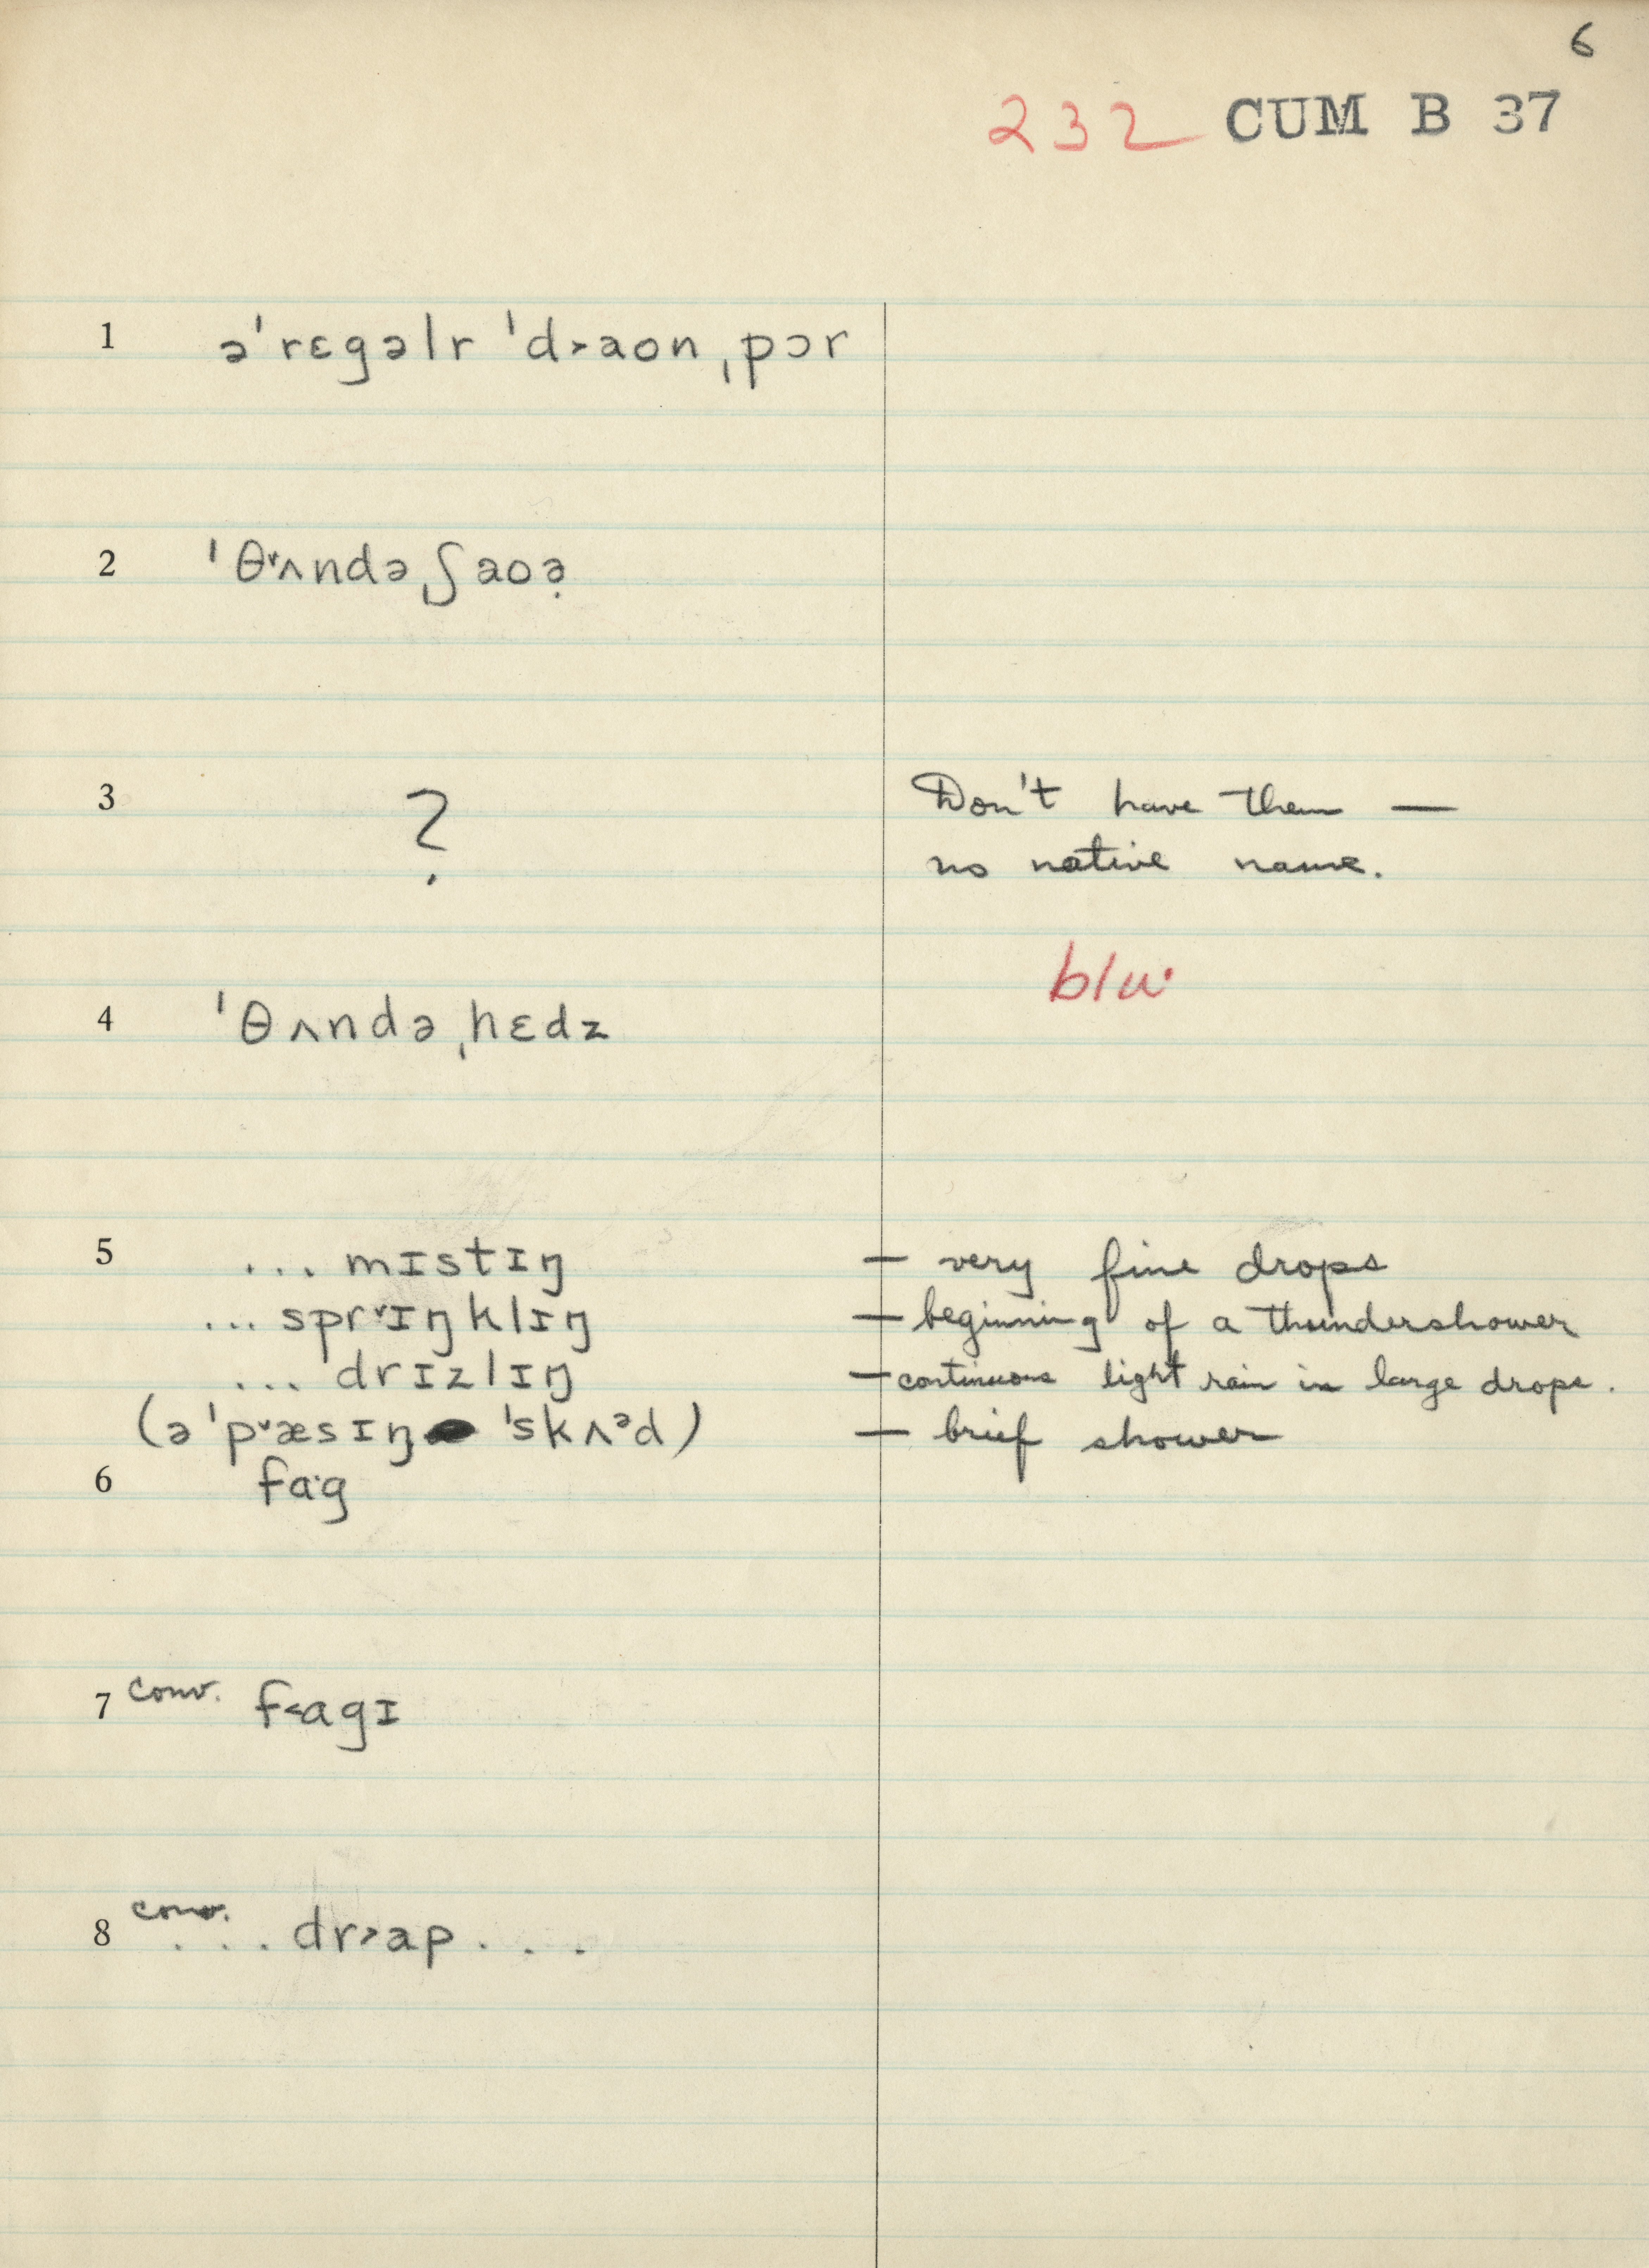 6
232 CUM B 37
1 əˈrɛgəlr ˈd˃aon ˌpɔr
2 ˈθ˅ʌndə ˌʃaoə̣
3 ? Don't have them —
no native name.
4 ˈθʌndə ˌhɛdz
5 ... mɪstɪŋ — very fine drops
... spr˅ɪŋklɪŋ — beginning of a thundershower
... drɪzlɪŋ — continuous light rain in large drops.
(əˈp˅æsɪŋ ˈskʌᵊd) — brief shower
6 fa·g
7 conv. f˂agɪ
8 conv. ... dr˃ap ...